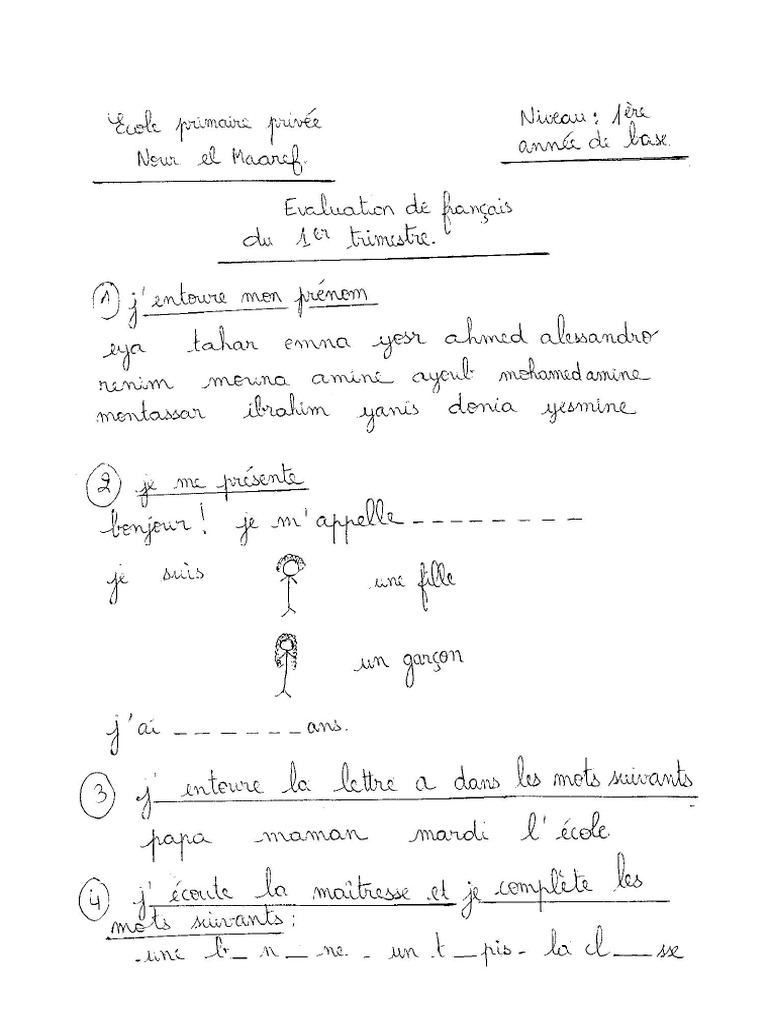 Ecole primaire privée
Nour el Maaref.
Niveau : 1ère
année de base.
Evaluation de français
du 1er trimestre.
1 j'entoure mon prénom
eya tahar emna yosr ahmed alessandro
renim mouna amine ayoub mohamed amine
montassar ibrahim yanis donia yesmine
2 je me présente
bonjour ! je m'appelle _ _ _ _ _ _ _ _
je suis une fille
un garçon
j'ai _ _ _ _ _ _ ans.
3 j'entoure la lettre a dans les mots suivants
papa maman mardi l'école
4 j'écoute la maîtresse et je complète les
mots suivants :
- une b_n_ne - un t_pis - la cl_sse